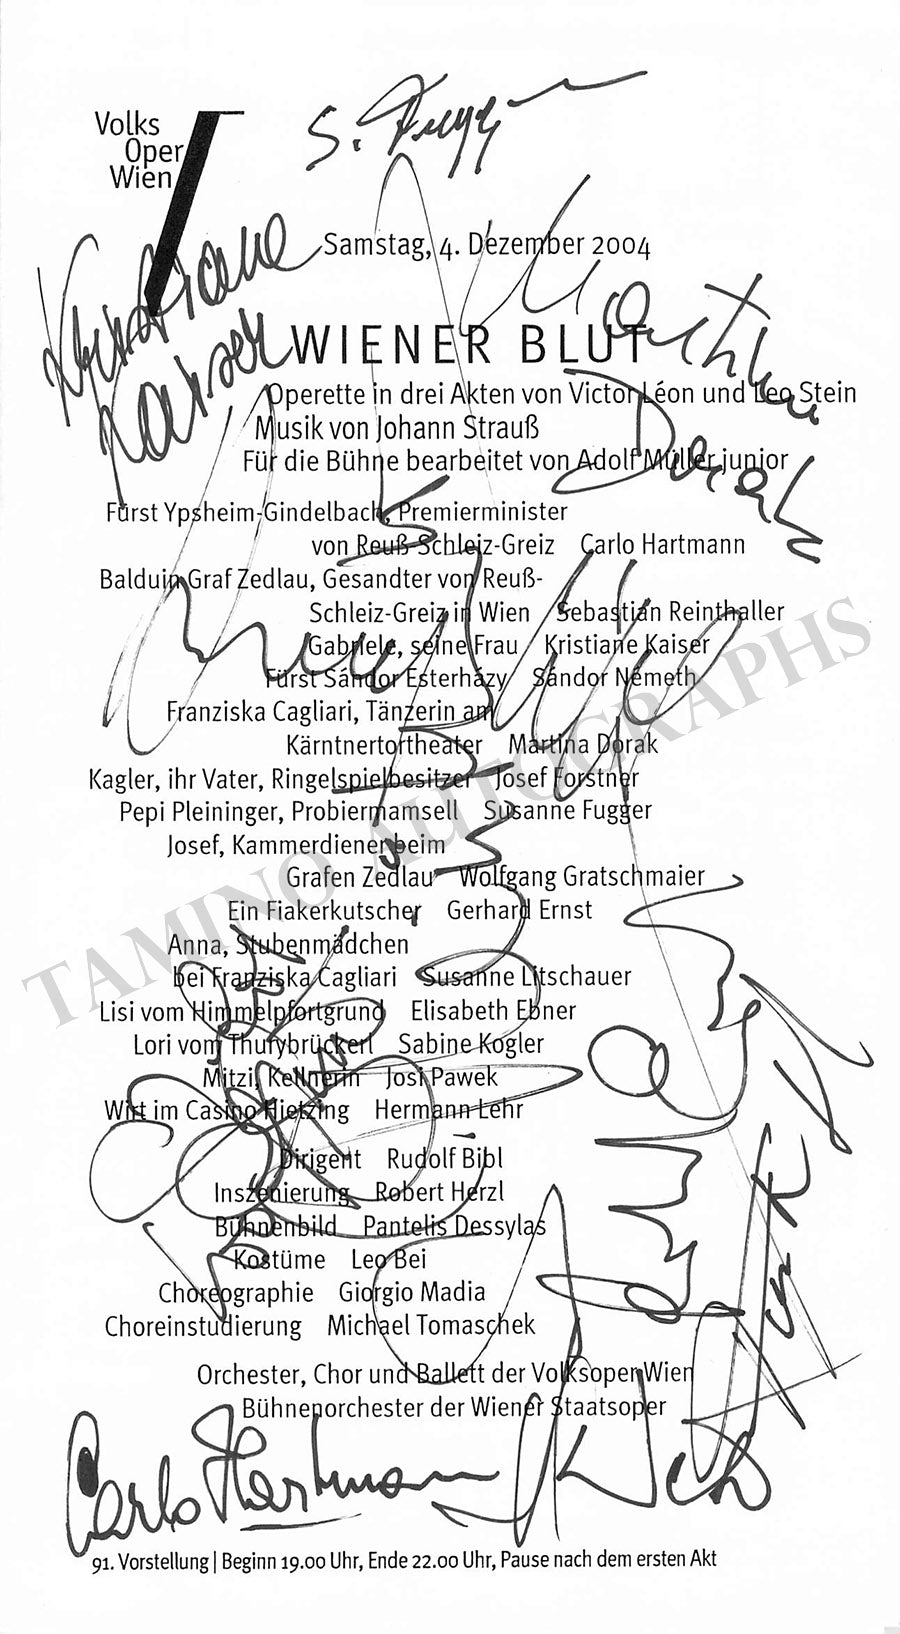 Volks
Oper
Wien
S. Fugger
Kristiane
Kaiser
Samstag, 4. Dezember 2004
Martina
Dorak
WIENER BLUT
Operette in drei Akten von Victor Léon und Leo Stein
Musik von Johann Strauß
Für die Bühne bearbeitet von Adolf Müller junior
Fürst Ypsheim-Gindelbach, Premierminister
von Reuß-Schleiz-Greiz Carlo Hartmann
Balduin Graf Zedlau, Gesandter von Reuß-
Schleiz-Greiz in Wien Sebastian Reinthaller
Gabriele, seine Frau Kristiane Kaiser
Fürst Sándor Esterházy Sándor Németh
Franziska Cagliari, Tänzerin am
Kärntnertortheater Martina Dorak
Kagler, ihr Vater, Ringelspielbesitzer Josef Forstner
Pepi Pleininger, Probiermamsell Susanne Fugger
Josef, Kammerdiener beim
Grafen Zedlau Wolfgang Gratschmaier
Ein Fiakerkutscher Gerhard Ernst
Anna, Stubenmädchen
bei Franziska Cagliari Susanne Litschauer
Lisi vom Himmelpfortgrund Elisabeth Ebner
Lori vom Thurybrückerl Sabine Kogler
Mitzi, Kellnerin Josi Pawek
Wirt im Casino Hietzing Hermann Lehr
Dirigent Rudolf Bibl
Inszenierung Robert Herzl
Bühnenbild Pantelis Dessylas
Kostüme Leo Bei
Choreographie Giorgio Madia
Choreinstudierung Michael Tomaschek
Orchester, Chor und Ballett der Volksoper Wien
Bühnenorchester der Wiener Staatsoper
Carlo Hartmann
91. Vorstellung | Beginn 19.00 Uhr, Ende 22.00 Uhr, Pause nach dem ersten Akt
TAMINO AUTOGRAPHS